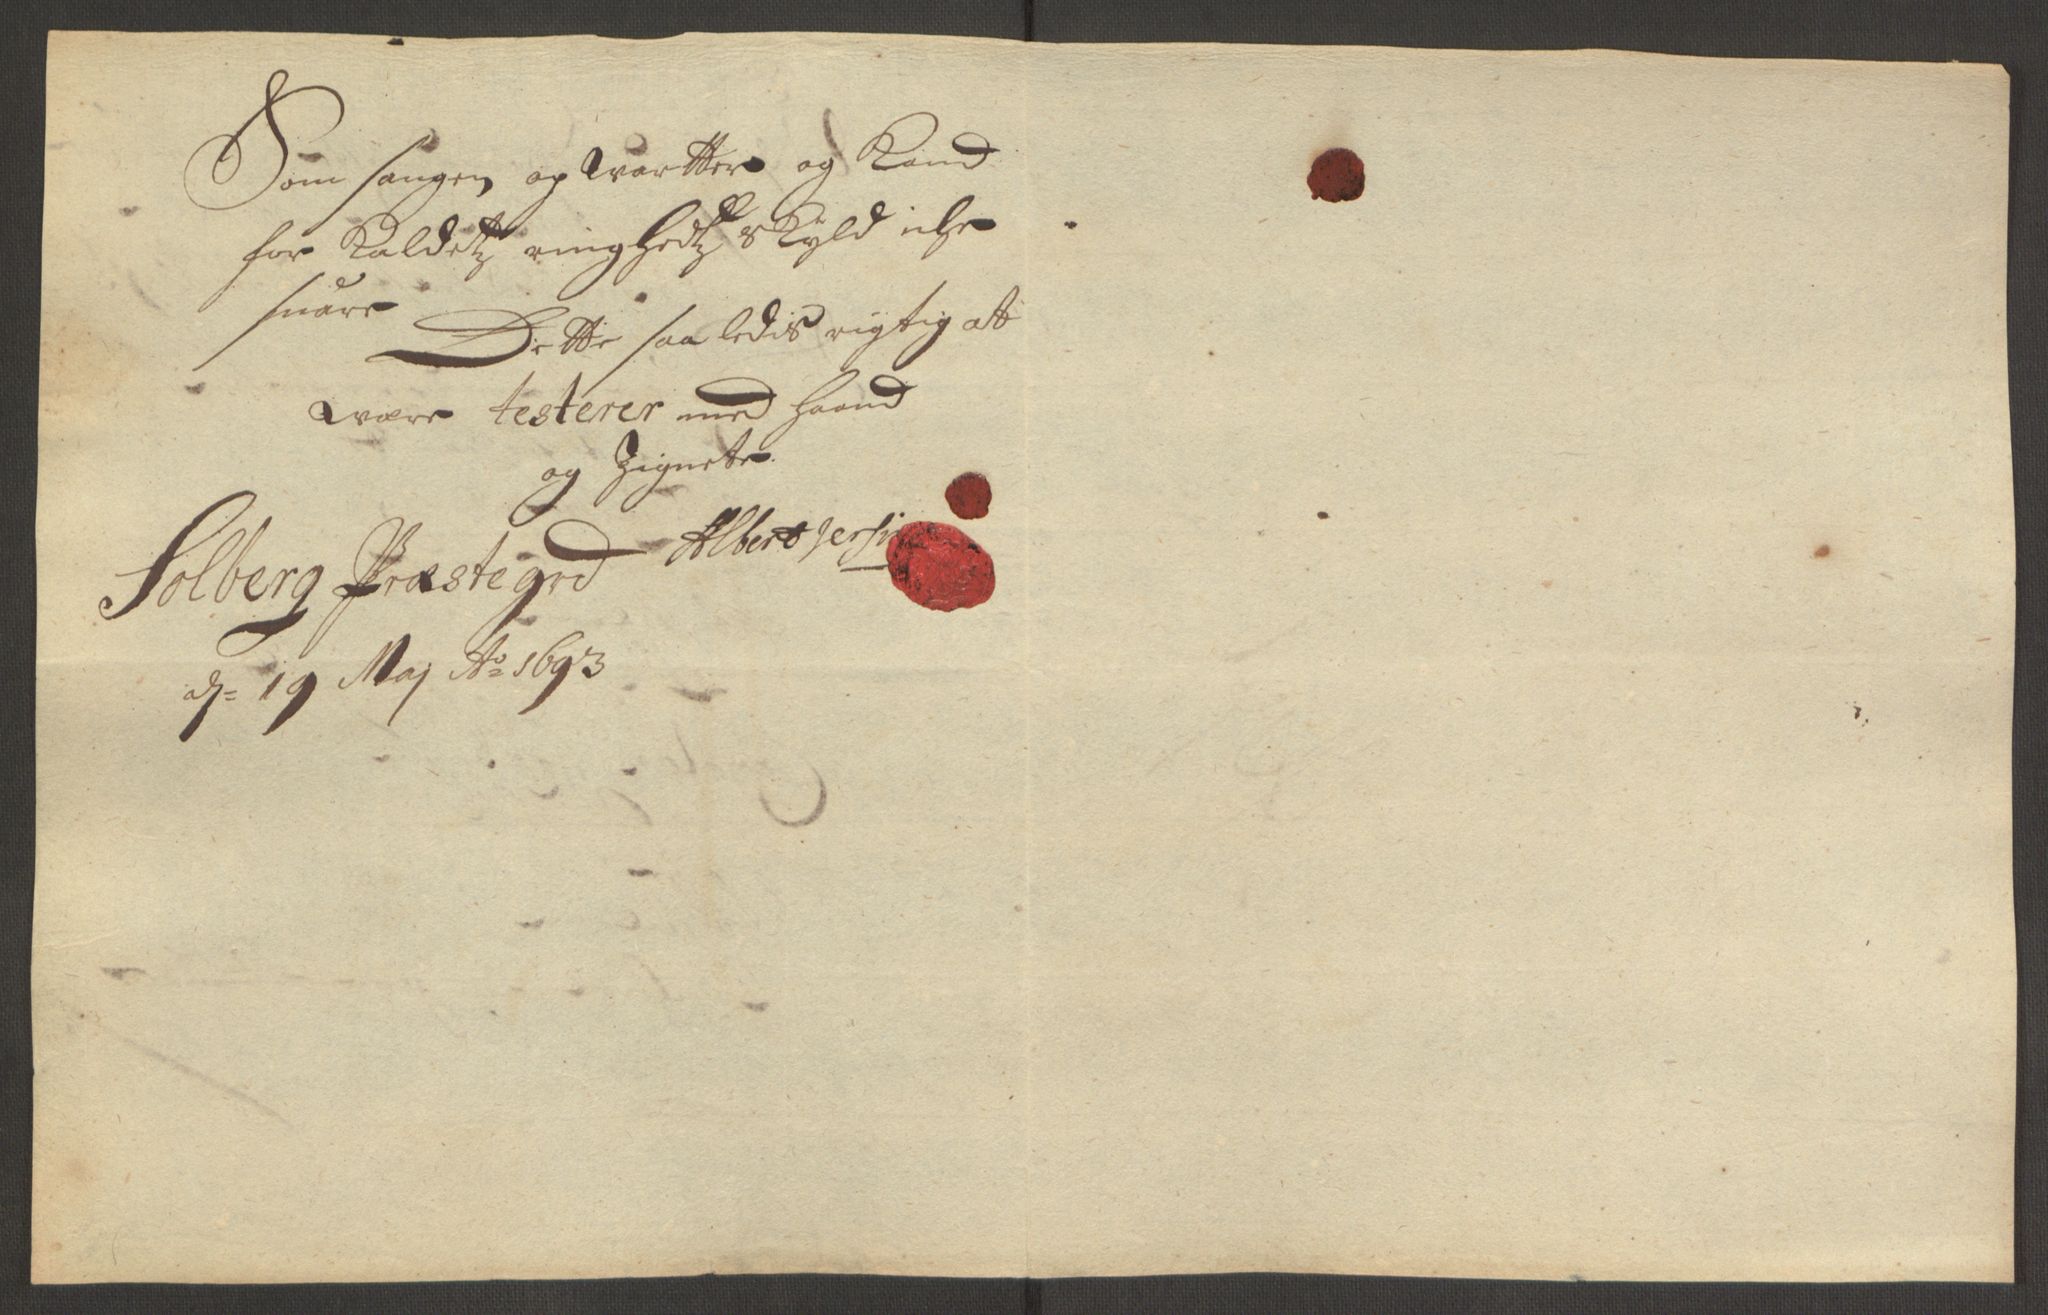 Som sangen opwartter og Kand
for Kaldetz ringhedtz skyld iche
snare
Dette saaledis rigtig att
være testerer med Haand
og Zignette.
Solberg Præstegrd Albert Jersin
dn= 19 Maj Ao 1693